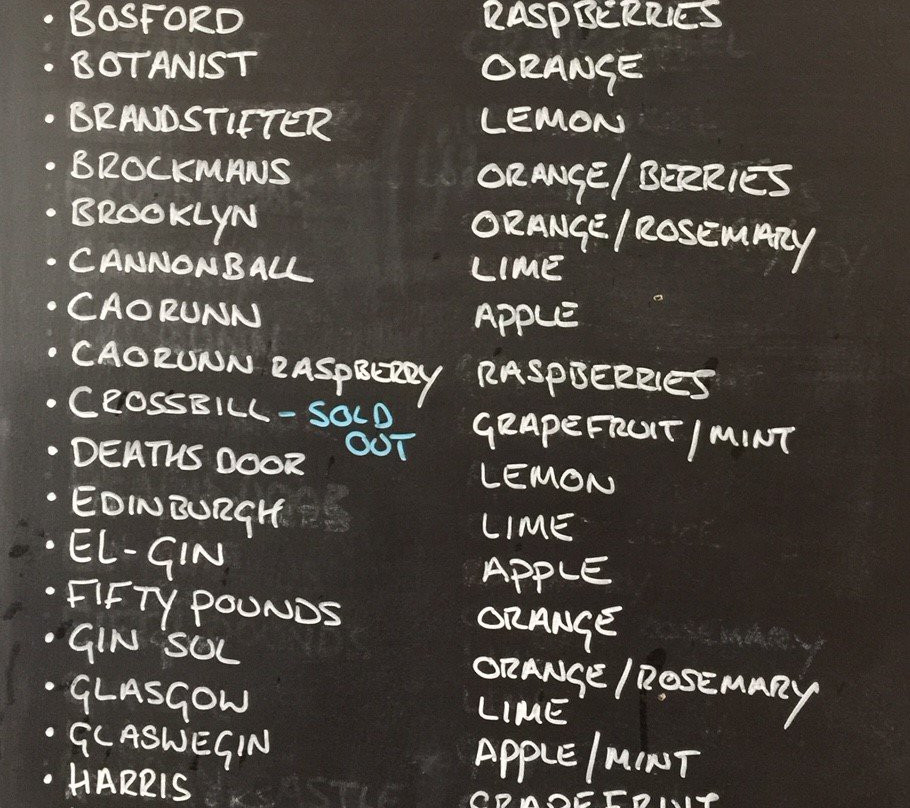 • BOSFORD RASPBERRIES
• BOTANIST ORANGE
• BRANDSTIFTER LEMON
• BROCKMANS ORANGE/BERRIES
• BROOKLYN ORANGE/ROSEMARY
• CANNONBALL LIME
• CAORUNN APPLE
• CAORUNN RASPBERRY RASPBERRIES
• CROSSBILL - SOLD OUT GRAPEFRUIT/MINT
• DEATHS DOOR LEMON
• EDINBURGH LIME
• EL-GIN APPLE
• FIFTY POUNDS ORANGE
• GIN SUL ORANGE/ROSEMARY
• GLASGOW LIME
• GLASWEGIN APPLE/MINT
• HARRIS GRAPEFRUIT